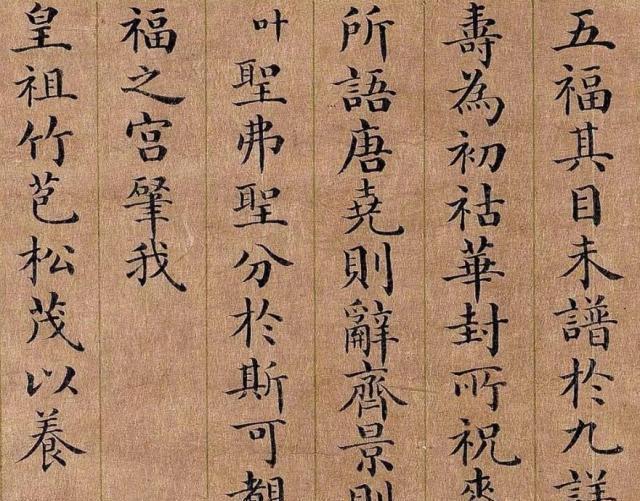 五福其目未譜於九詳
壽為初祜華封所祝爽
所語唐堯則辭齊景則
叶聖弗聖分於斯可覩
福之宮肇我
皇祖竹苞松茂以養